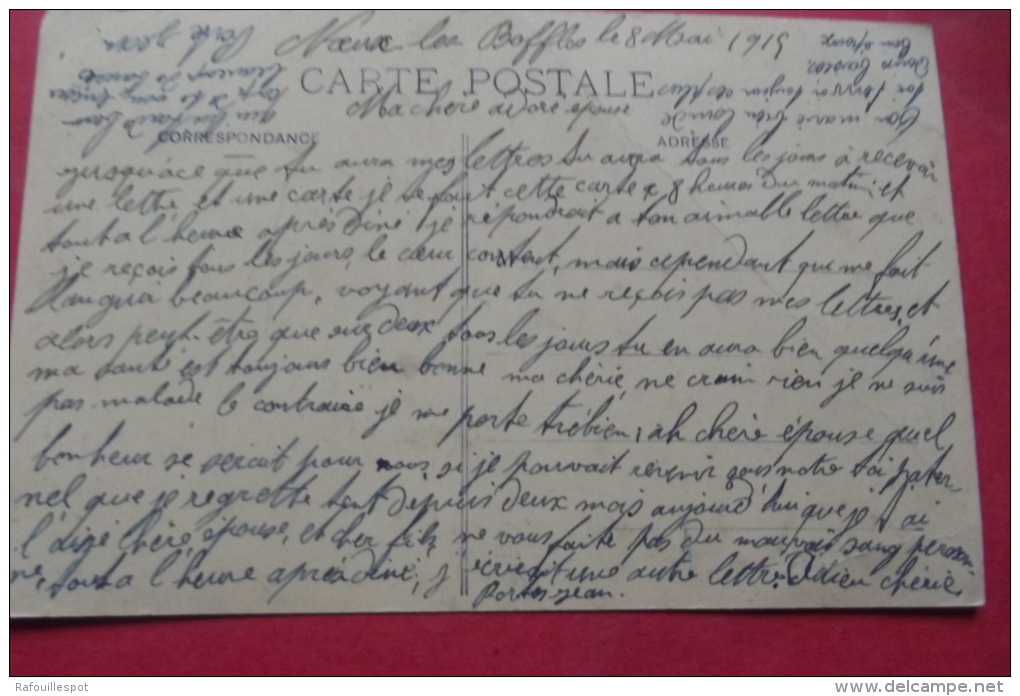 Nœux les Boffles le 8 Mai 1915
CARTE POSTALE
Ma chère adoré épouse
CORRESPONDANCE
ADRESSE
jusquace que tu aura mes lettres tu aura tous les jours à recevoir
une lettre et une carte je te fait cette carte a 8 heures du matin, et
tout a l'heure après diné je répondrait a ton aimable lettre que
je reçois tous les jours, le cœur content, mais cependant qui me fait
beaucoup, voyant que tu ne reçois pas mes lettres, et
alors peut-être que sur deux tous les jours tu en aura bien quelqu'une
ma santé est toujours bien bonne ma chérie, ne crain rien je ne suis
pas malade le contraire je me porte trèbien, ah chère épouse quel
bonheur se serait pour nous si je pouvait revenir sous notre toi pater-
nel que je regrette tant depuis deux mois aujourd'hui que je l'ai
chère épouse, et cher fils, ne vous faite pas du mauvais sang
tout a l'heure après diné, j'écrirait une autre lettre. Adieu chérie
Portes jean.
ton mari bien
Rafouillespot
http://www.delcampe.net